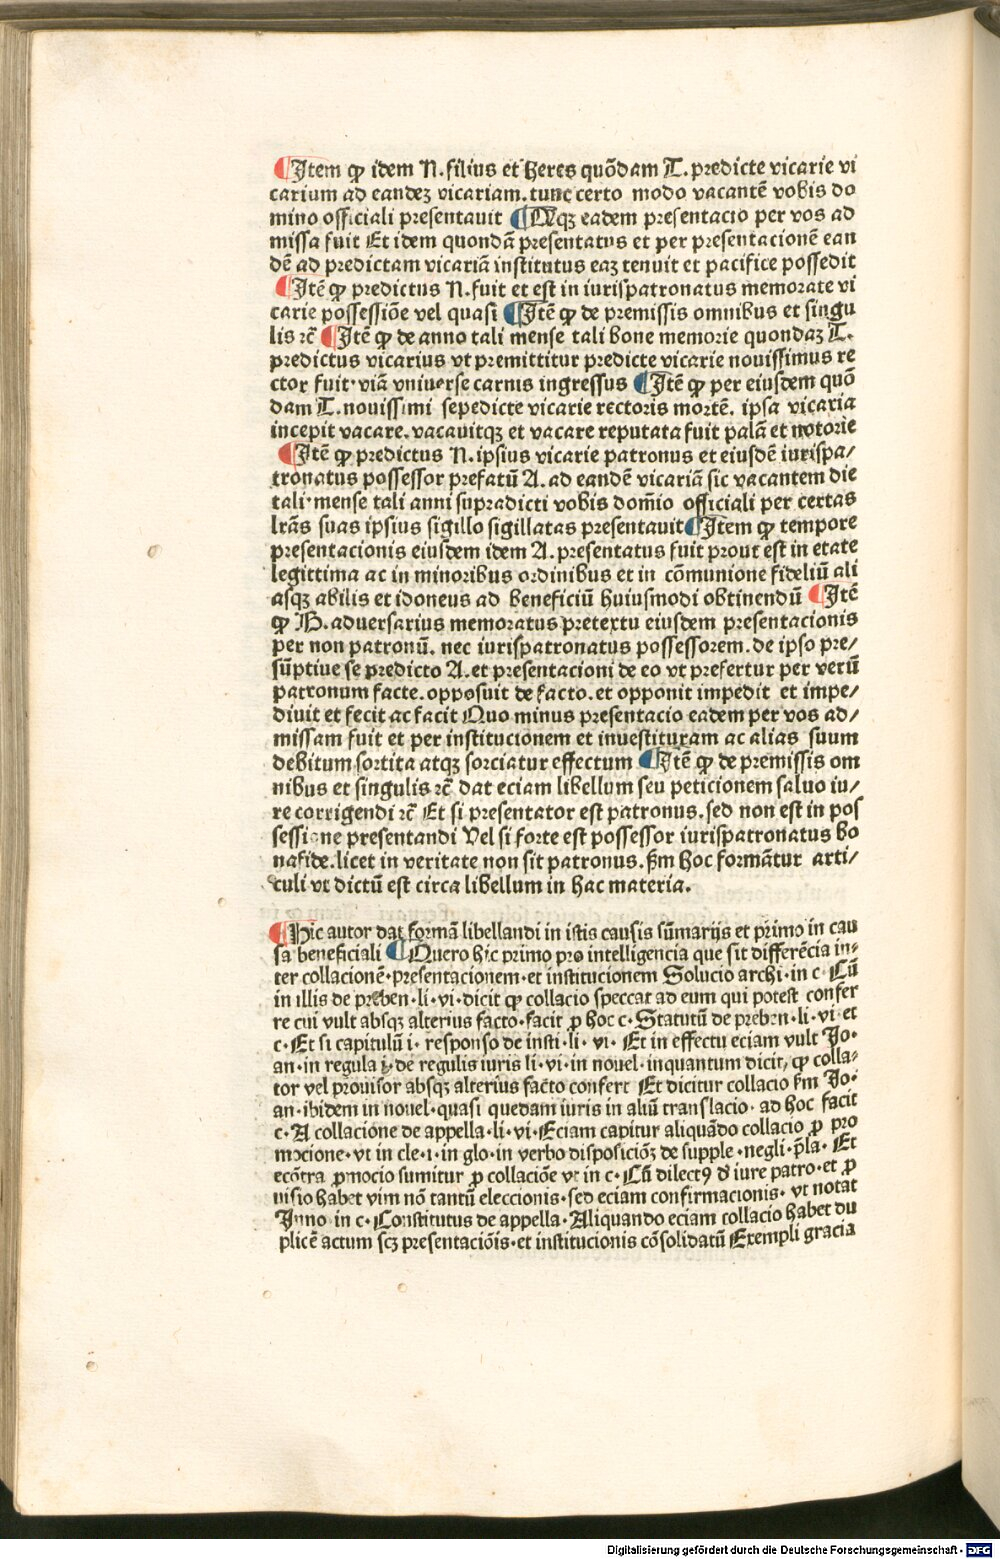 ¶Item ꝙ idem N. filius et heres quōdam T. predicte vicarie vi
carium ad eandeꝫ vicariam. tunc certo modo vacantē vobis do
mino officiali presentauit ¶Qqꝫ eadem presentacio per vos ad
missa fuit Et idem quondā presentatus et per presentacionē ean
dē ad predictam vicariā institutus eaꝫ tenuit et pacifice possedit
¶Itē ꝙ predictus N. fuit et est in iurispatronatus memorate vi
carie possessiōe vel quasi ¶Itē ꝙ de premissis omnibus et singu
lis ⁊c̄ ¶Itē ꝙ de anno tali mense tali bone memorie quondaꝫ T.
predictus vicarius vt premittitur predicte vicarie nouissimus re
ctor fuit· viā vniuerse carnis ingressus ¶Itē ꝙ per eiusdem quō
dam T. nouissimi sepedicte vicarie rectoris mortē. ipsa vicaria
incepit vacare. vacauitqꝫ et vacare reputata fuit palā et notorie
¶Itē ꝙ predictus N. ipsius vicarie patronus et eiusdē iurispa/
tronatus possessor prefatū A. ad eandē vicariā sic vacantem die
tali· mense tali anni supradicti vobis dom̄io officiali per certas
lr̄as suas ipsius sigillo sigillatas presentauit ¶Item ꝙ tempore
presentacionis eiusdem idem A. presentatus fuit prout est in etate
legittima ac in minoribus ordinibus et in cōmunione fideliū ali
asqꝫ abilis et idoneus ad beneficiū huiusmodi obtinendū ¶Itē
ꝙ B. aduersarius memoratus pretextu eiusdem presentacionis
per non patronū. nec iurispatronatus possessorem. de ipso pre/
sūptiue se predicto A. et presentacioni de eo vt prefertur per verū
patronum facte. opposuit de facto. et opponit impedit et impe/
diuit et fecit ac facit Quo minus presentacio eadem per vos ad/
missam fuit et per institucionem et inuestituram ac alias suum
debitum sortita atqꝫ sorciatur effectum ¶Itē ꝙ de premissis om
nibus et singulis ⁊c̄ dat eciam libellum seu peticionem saluo iu/
re corrigendi ⁊c̄ Et si presentator est patronus. sed non est in pos
sessione presentandi Vel si forte est possessor iurispatronatus bo
nafide. licet in veritate non sit patronus. ẜm hoc formātur arti/
culi vt dictū est circa libellum in hac materia.
¶Hic autor dat formā libellandi in istis causis sūmarijs et primo in cau
sa beneficiali ¶Quero hic primo pro intelligencia que sit differēcia in-
ter collacionē· presentacionem· et institucionem Solucio archi· in c· Cū
in illis de preben· li· vi· dicit ꝙ collacio speccat ad eum qui potest confer
re cui vult absqꝫ alterius facto· facit ꝓ hoc c· Statutū de preben· li· vi· et
c· Et si capitulū i· responso de insti· li· vi· Et in effectu eciam vult Jo·
an· in regula i· de regulis iuris li· vi· in nouel· inquantum dicit, ꝙ colla-
tor vel prouisor absqꝫ alterius facto confert Et dicitur collacio ẜm Jo·
an· ibidem in nouel· quasi quedam iuris in aliū translacio· ad hoc facit
c· A collacione de appella· li· vi· Eciam capitur aliquādo collacio ꝓ pro
mocione· vt in cle· i· in glo· in verbo disposicioꝫ de supple· negli· p̄la· Et
ecōtra ꝓmocio sumitur ꝓ collaciōe vt in c· Cū dilectꝯ d̄ iure patro· et ꝓ
uisio habet vim nō tantū eleccionis· sed eciam confirmacionis· vt notat
Inno· in c· Constitutus de appella· Aliquando eciam collacio habet du
plicē actum scꝫ presentaciōis· et institucionis cōsolidatū Exempli gracia
Digitalisierung gefördert durch die Deutsche Forschungsgemeinschaft - DFG